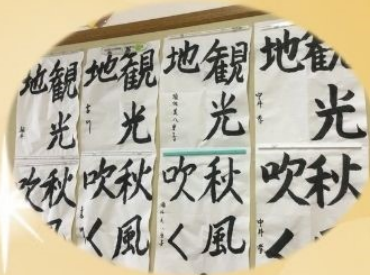 観光
地
中井
観光
地
観光
地
観光
地
秋風
吹く
中井
秋風
吹く
秋風
吹く
秋風
吹く